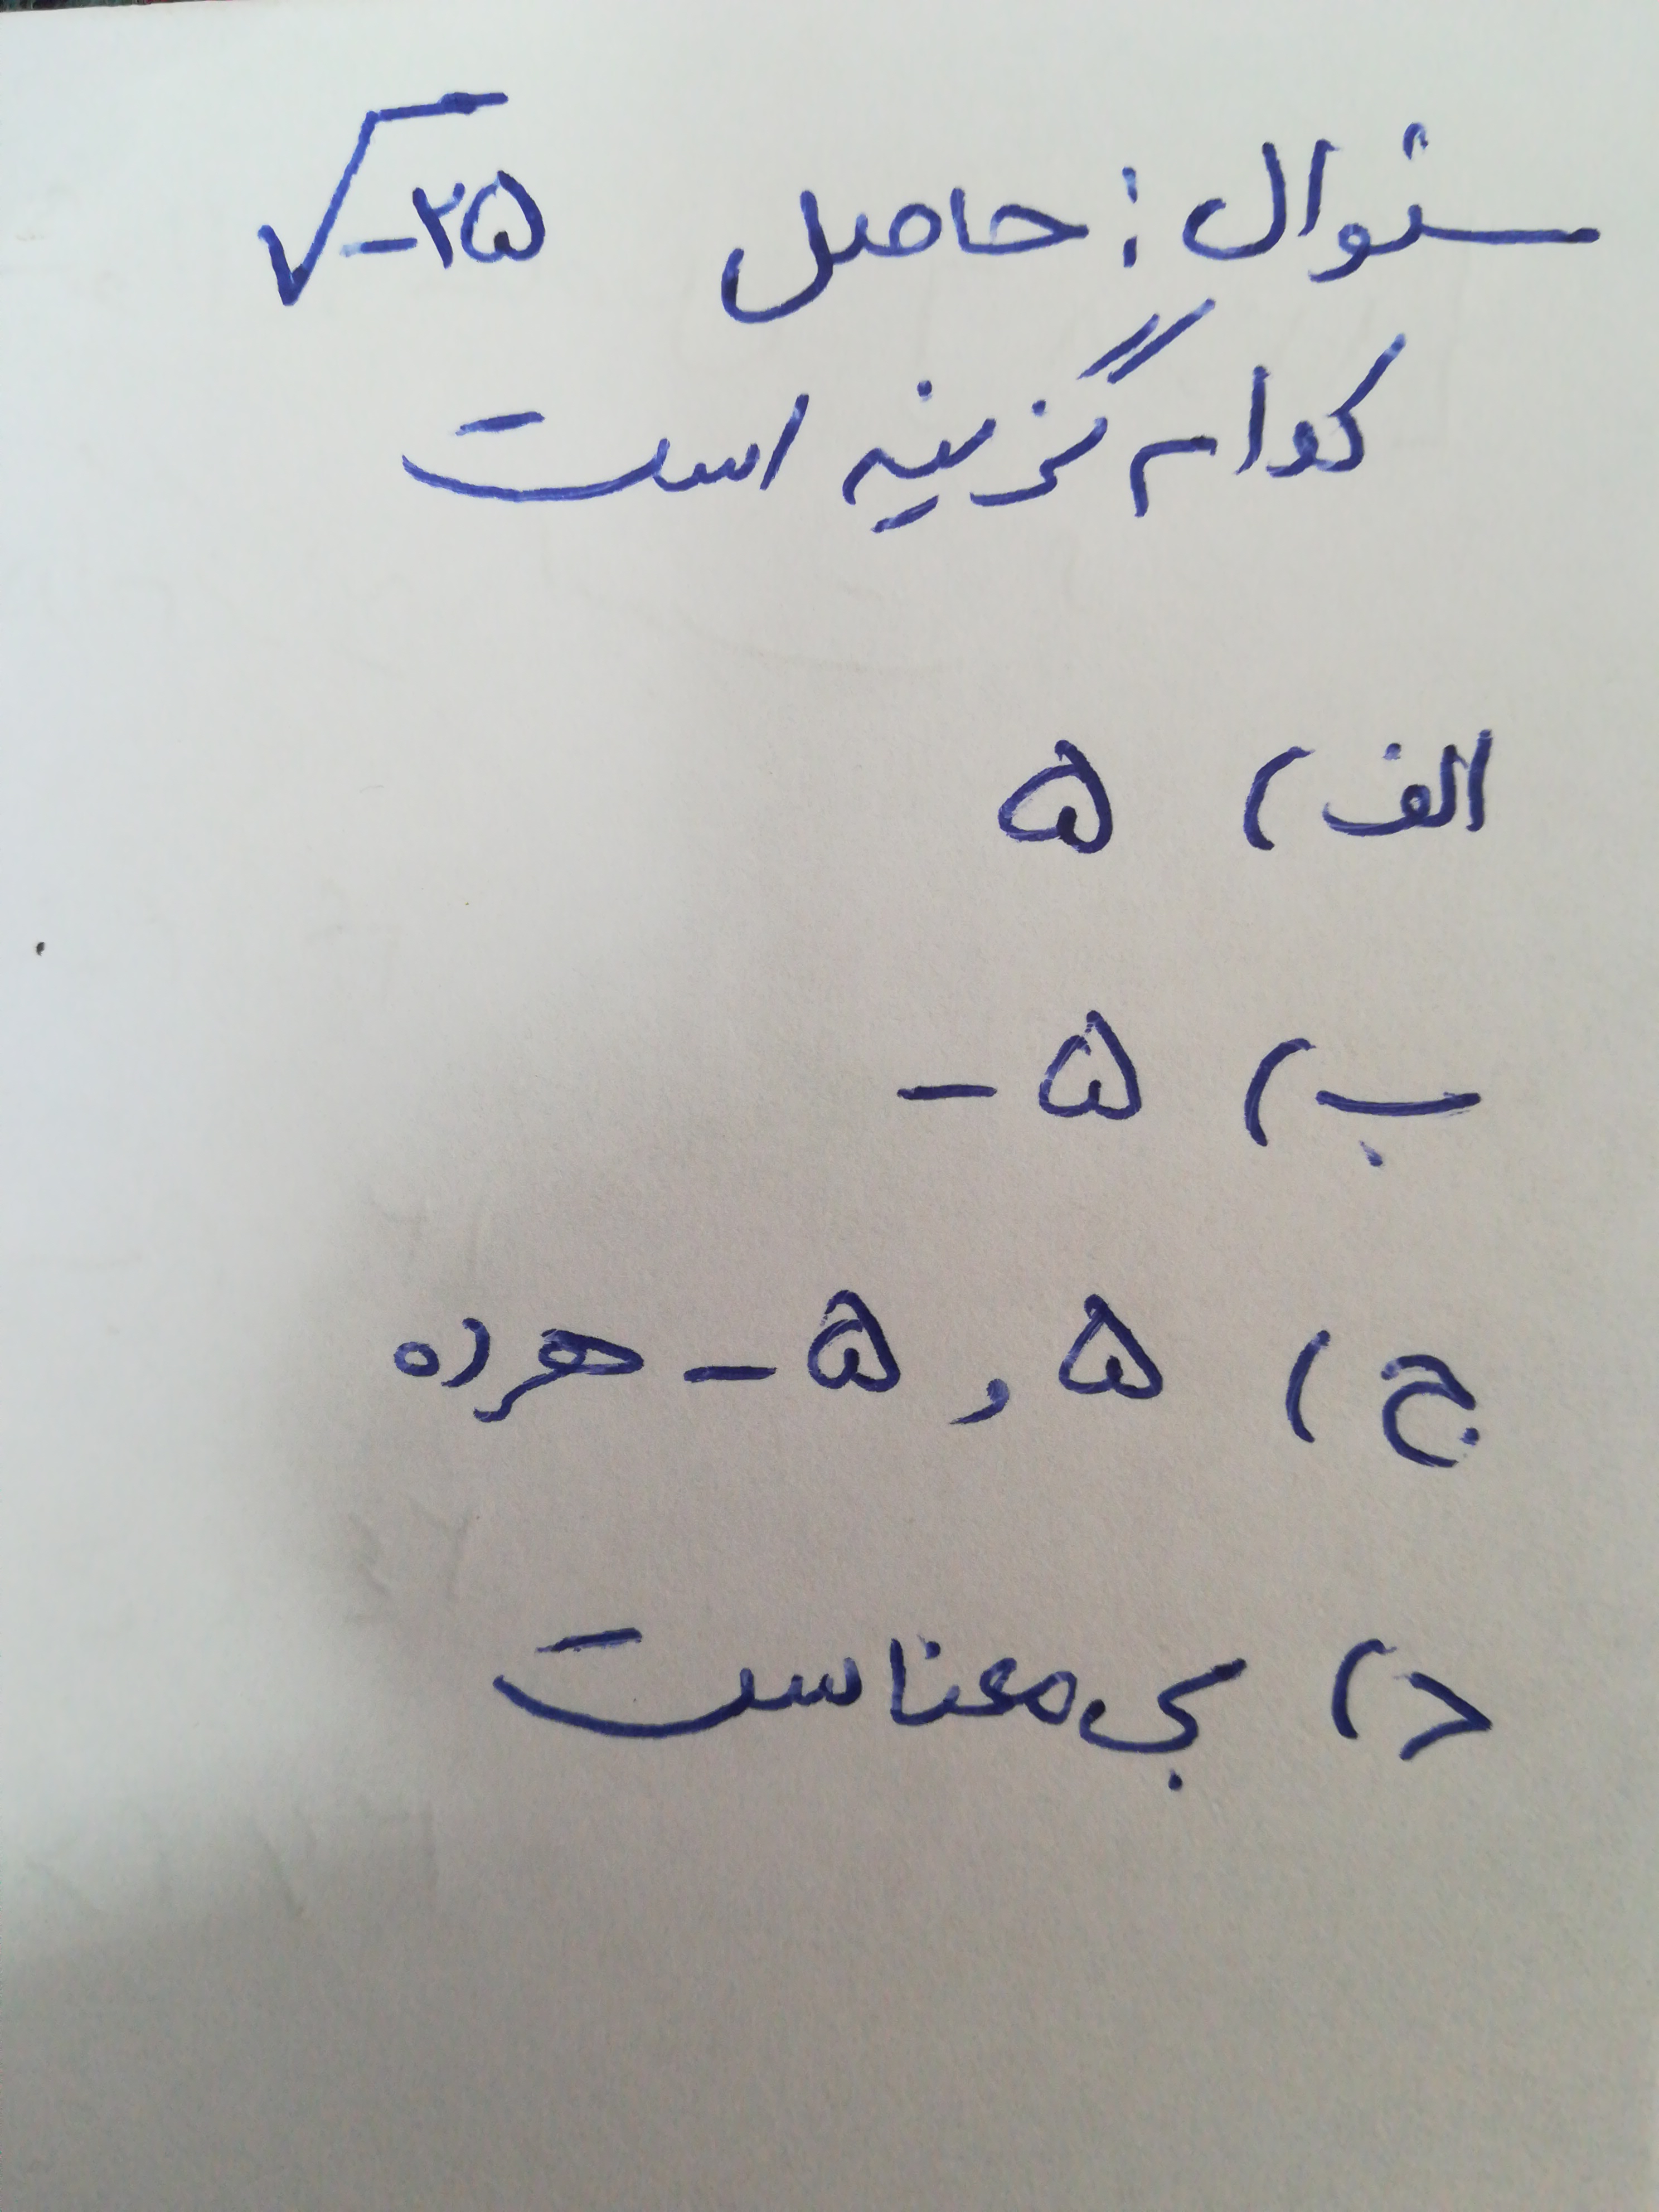 سئوال : حاصل √-۲۵
کدام گزینه است
الف) ۵
ب) ۵ -
ج) ۵ و ۵ - هردو
د) بی معناست